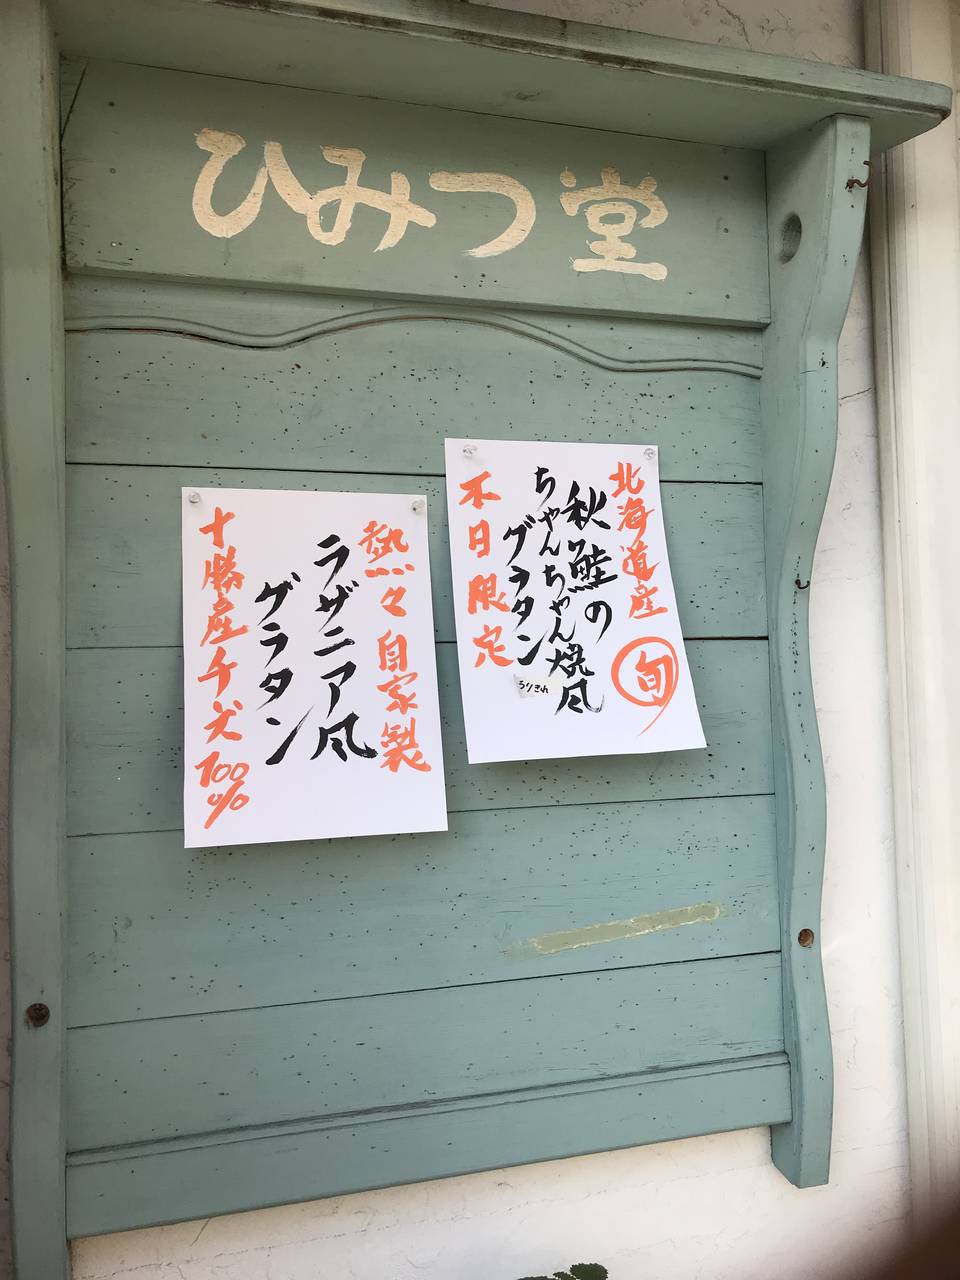 ひみつ堂
北海道産
旬
秋鮭の
ちゃんちゃん焼風
グラタン
うりきれ
本日限定
熱々自家製
ラザニア風
グラタン
十勝産チーズ100%